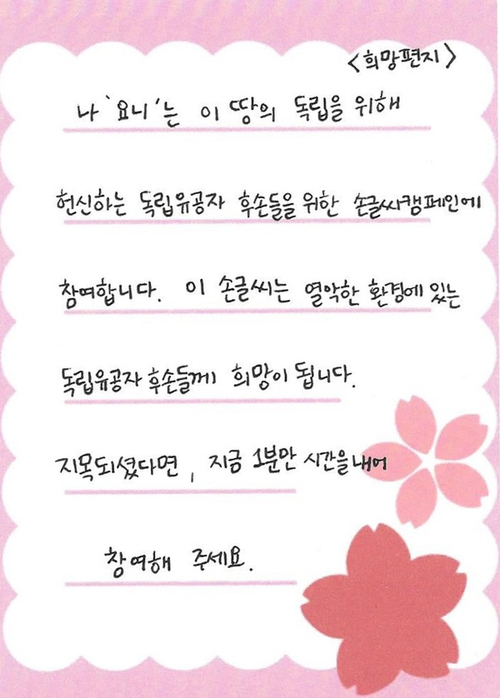 <희망편지>
나 '요니'는 이 땅의 독립을 위해
헌신하는 독립유공자 후손들을 위한 손글씨캠페인에
참여합니다. 이 손글씨는 열악한 환경에 있는
독립유공자 후손들께 희망이 됩니다.
지목되셨다면, 지금 1분만 시간을 내어
참여해 주세요.